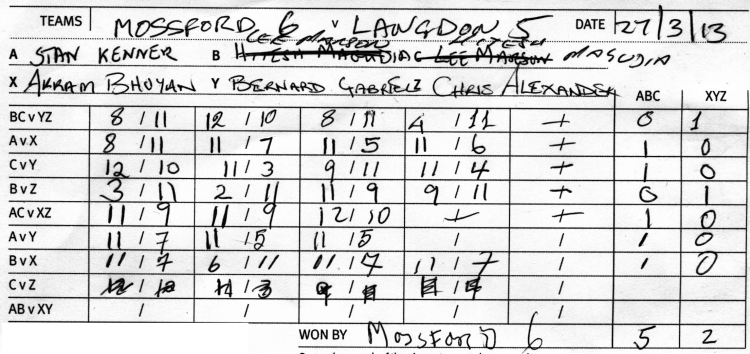 TEAMS MOSSFORD 6 V LANGDON 5 DATE 27/3/13
A STAN KENNER B LEE MAGSON HITESH MASUDIA
X AKRAM BHUYAN Y BERNARD GABRIELE CHRIS ALEXANDER ABC XYZ
BC v YZ 8 / 11 12 / 10 8 / 11 4 / 11 + 0 1
A v X 8 / 11 11 / 7 11 / 5 11 / 6 + 1 0
C v Y 12 / 10 11 / 3 9 / 11 11 / 4 + 1 0
B v Z 3 / 11 2 / 11 11 / 9 9 / 11 + 0 1
AC v XZ 11 / 9 11 / 9 12 / 10 + + 1 0
A v Y 11 / 7 11 / 5 11 / 5 / / 1 0
B v X 11 / 7 6 / 11 11 / 7 11 / 7 / 1 0
C v Z / / / / /
AB v XY / / / / /
WON BY MOSSFORD 6 5 2